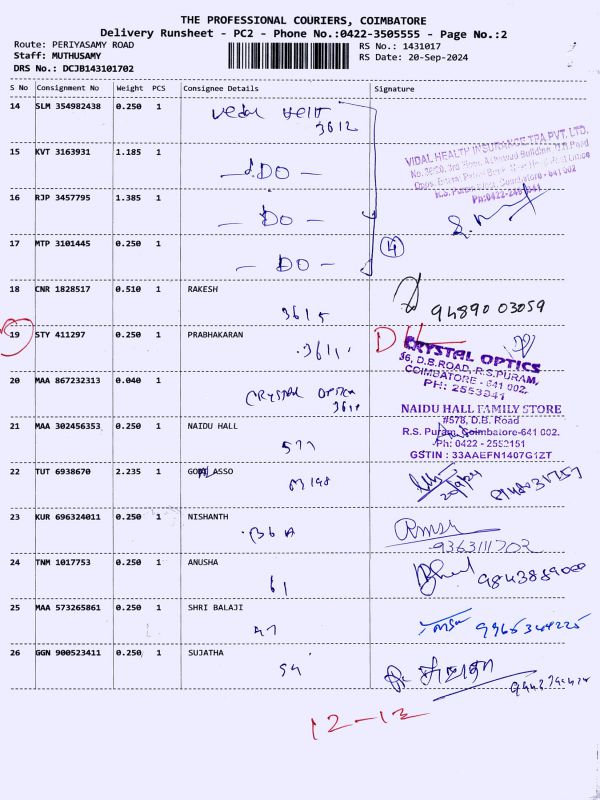 THE PROFESSIONAL COURIERS, COIMBATORE
Delivery Runsheet - PC2 - Phone No.:0422-3505555 - Page No.:2
Route: PERIYASAMY ROAD RS No.: 1431017
Staff: MUTHUSAMY RS Date: 20-Sep-2024
DRS No.: DCJB143101702
S No Consignment No Weight PCS Consignee Details Signature
14 SLM 354982438 0.250 1
3612
VIDAL HEALTH INSURANCE TPA PVT. LTD.
15 KVT 3163931 1.185 1 DO
R.S. Puram, Coimbatore - 641 002
16 RJP 3457795 1.385 1 - DO -
17 MTP 3101445 0.250 1 - DO - 4
18 CNR 1828517 0.510 1 RAKESH
3615 94890 03059
19 STY 411297 0.250 1 PRABHAKARAN
3611
CRYSTAL OPTICS
36, D.B.ROAD, R.S.PURAM,
COIMBATORE - 641 002.
PH: 2553941
20 MAA 867232313 0.040 1
CRYSTAL OPTICS
3611
21 MAA 302456353 0.250 1 NAIDU HALL
577
NAIDU HALL FAMILY STORE
#578, D.B. Road
R.S. Puram, Coimbatore-641 002.
Ph: 0422 - 2552151
GSTIN : 33AAEFN1407G1ZT
22 TUT 6938670 2.235 1 ASSO
M198 20/9/24
23 KUR 696324011 0.250 1 NISHANTH
9363111702
24 TNM 1017753 0.250 1 ANUSHA
61 9843889000
25 MAA 573265861 0.250 1 SHRI BALAJI
26 GGN 900523411 0.250 1 SUJATHA
12-12